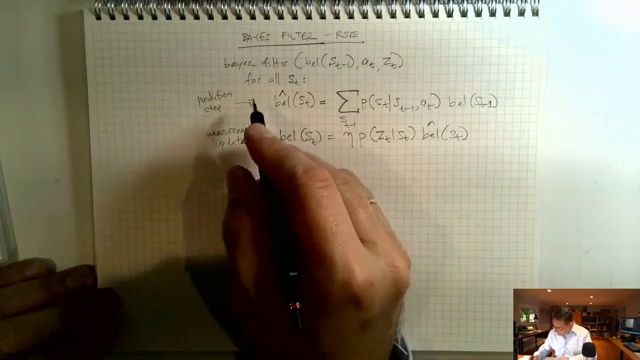 BAYES FILTER - RSE
bayes filter (bel(S_{t-1}), a_t, Z_t)
for all S_t:
prediction step → \hat{bel}(S_t) = ∑_{S_{t-1}} p(S_t | S_{t-1}, a_t) bel(S_{t-1})
bel(S_t) = η p(Z_t | S_t) \hat{bel}(S_t)